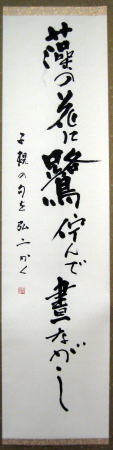 藻の花に鷺佇んで晝ながし
子規の句を 弘二かく